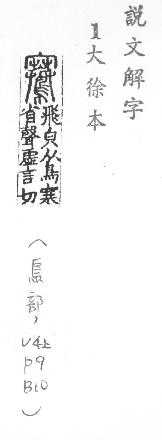 說文解字
1大徐本
鶱
飛皃从鳥寒
省聲虛言切
(鳥部,
V4上
P9
B10)